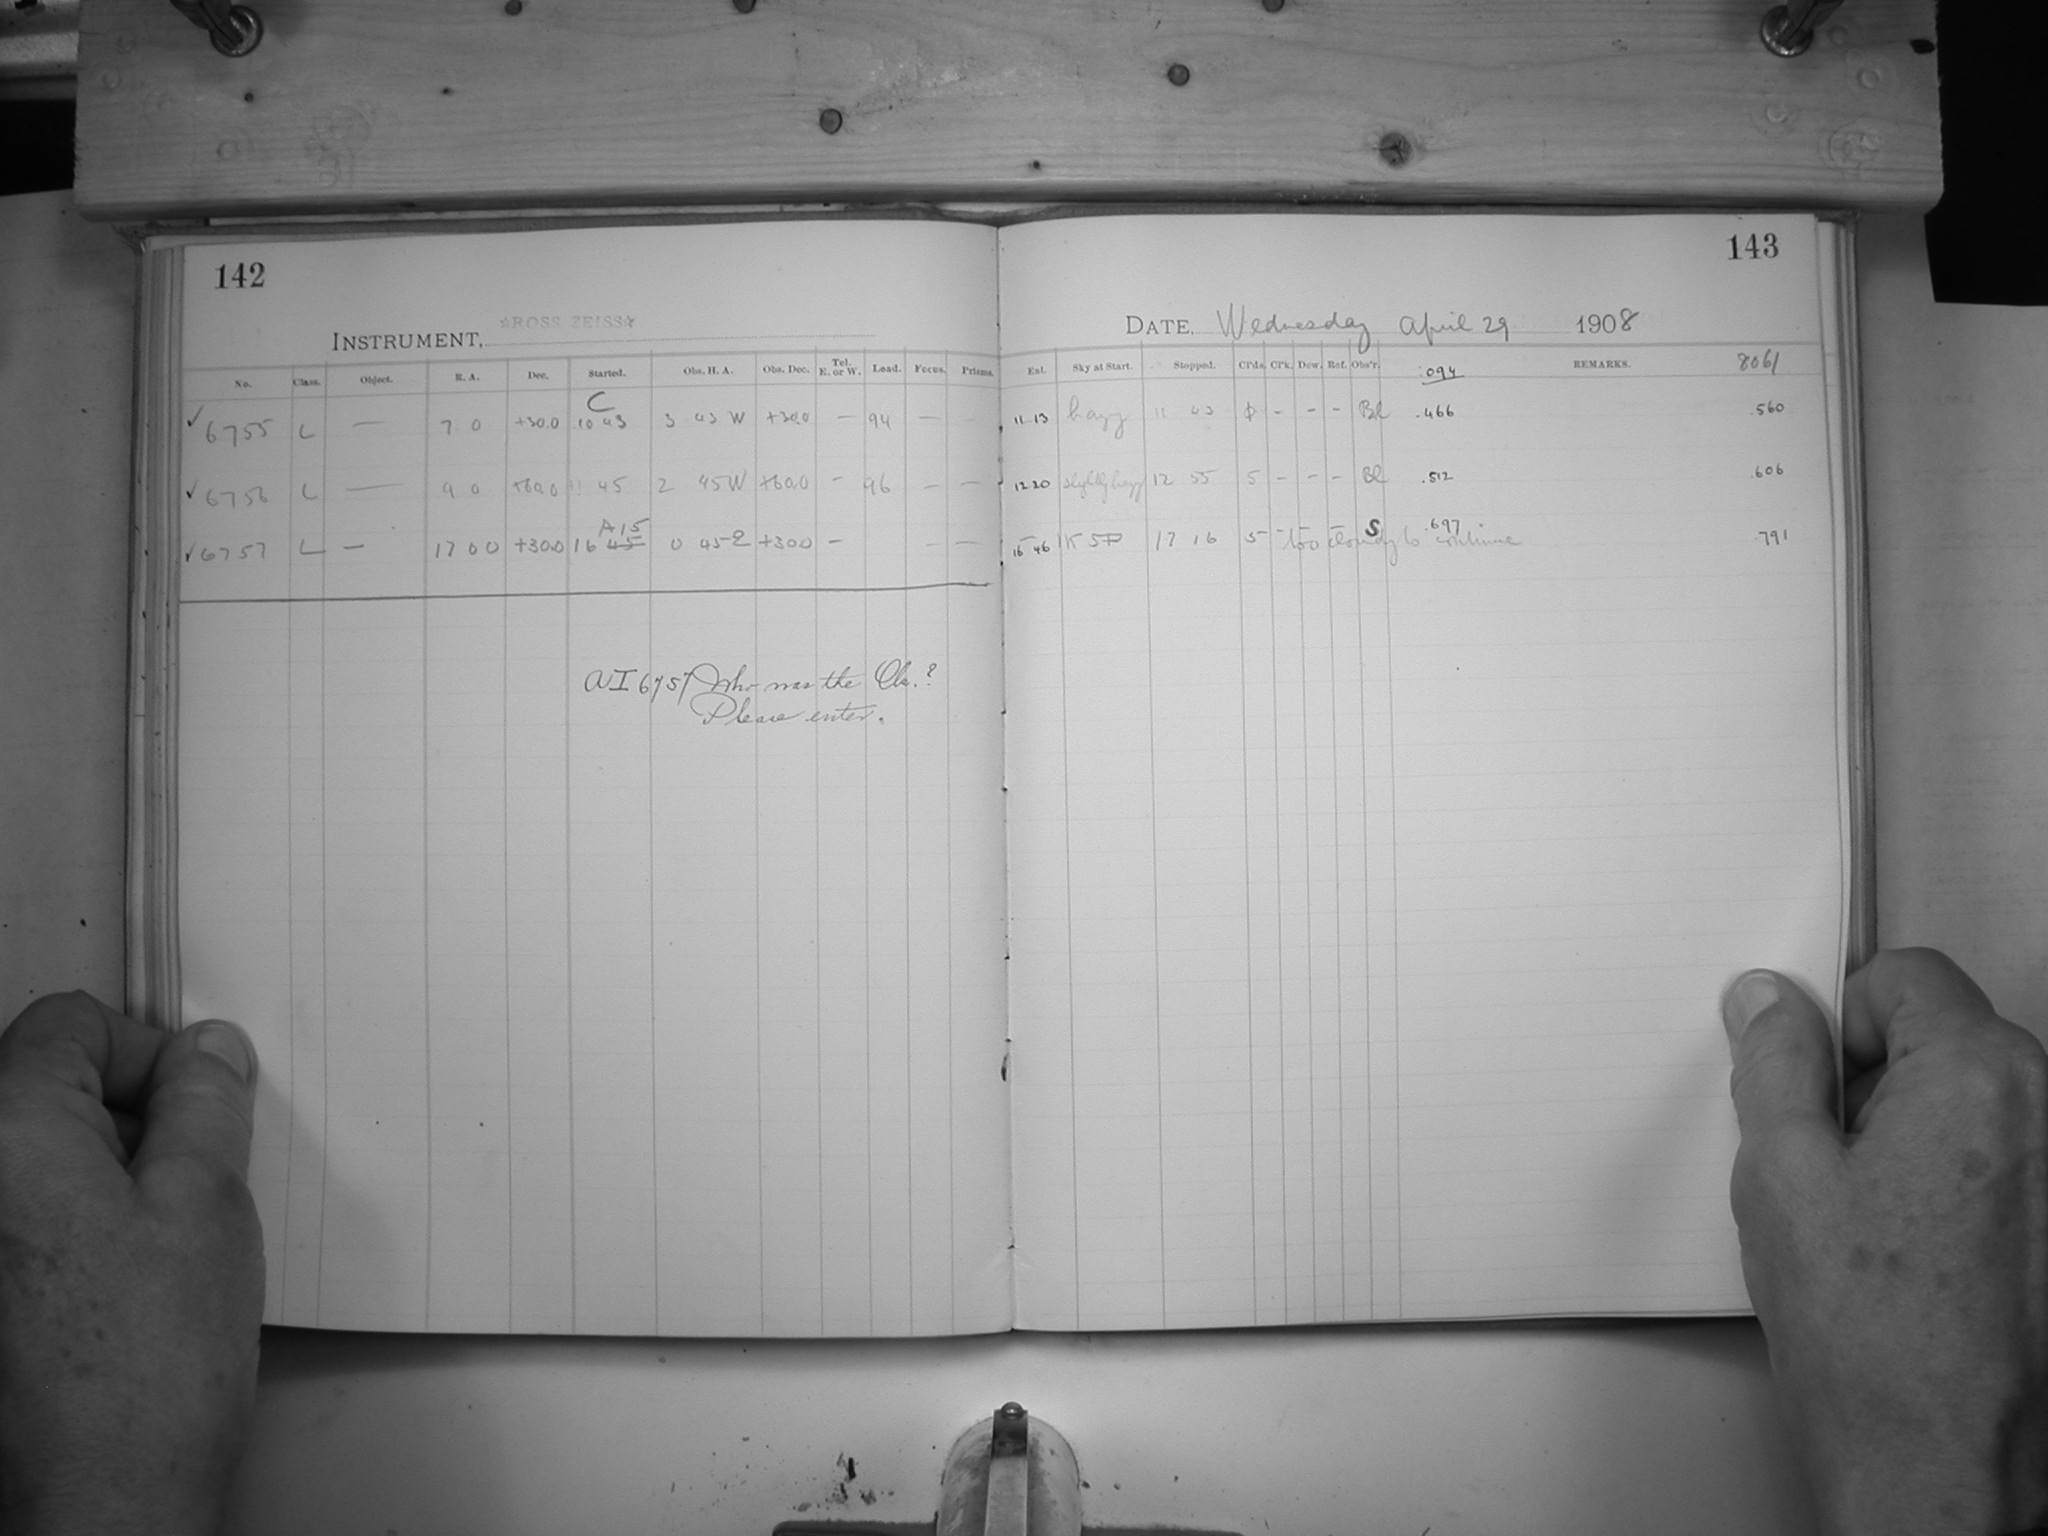 142
143
☆ROSS ZEISS☆
INSTRUMENT,
DATE, Wednesday April 29 1908
No. Class. Object. R. A. Dec. Started. Obs. H. A. Obs. Dec. Tel. E. or W. Load. Focus. Prisms. Enl. Sky at Start. Stopped. Cl'ds. Cl'k. Dew. Ref. Obs'r. .094 REMARKS. 8061
C
✓ 6755 L — 7 0 +30.0 10 43 3 43 W +30.0 — 94 — — 11 13 hazy 11 43 - - - Bl .466 .560
✓ 6756 L — 9 0 +60.0 11 45 2 45 W +60.0 - 96 — — 12 20 slightly hazy 12 55 5 - - - Bl .512 .606
A 15 S .697
✓ 6757 L — 17 00 +30.0 16 45 0 45 E +30.0 — — — 16 46 17 16 5 too cloudy to continue .791
AI 6757 Who was the Obs.?
Please enter.